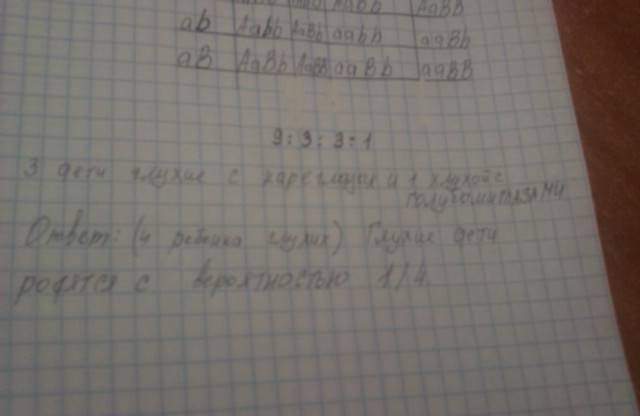 AaBb AaBB
ab Aabb AaBb aabb aaBb
aB AaBb AaBB aaBb aaBB
9:3:3:1
3 дети глухие с и 1 глухой с
голубыми глазами
Ответ: (4 ребёнка глухих) Глухие дети
родятся с вероятностью 1/4.